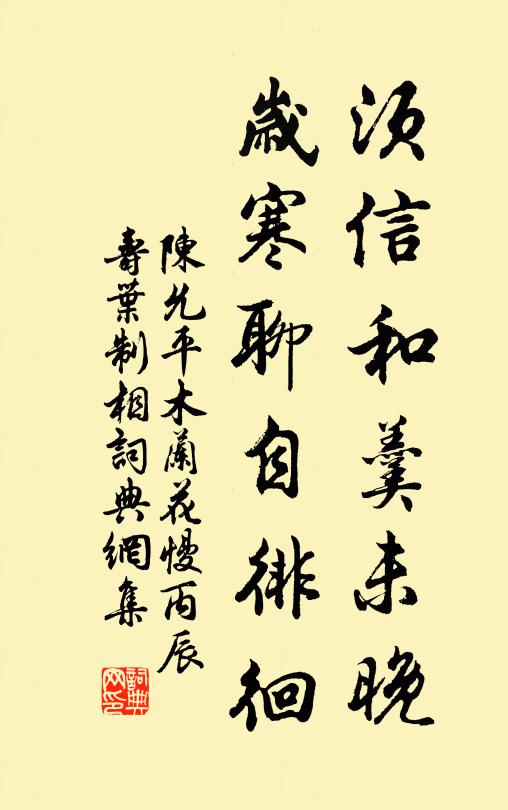 須信和羹未晚
歲寒聊自徘徊
陳允平木蘭花慢丙辰
壽葉制相詞典網集
詞典
网印